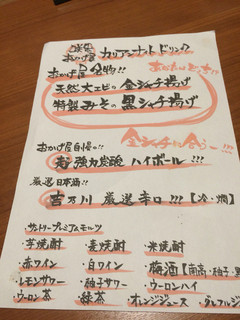 おかげ屋 カリアンナイトドリンク
おかげ屋名物!!
天然大エビの金シャチ揚げ
特製みその黒シャチ揚げ
金シャチに合う〜!!!
おかげ屋自慢の!!
超強力炭酸 ハイボール!!!
厳選日本酒!!
吉乃川 厳選辛口!!! 【冷・燗】
サントリープレミアムモルツ
芋焼酎 麦焼酎 米焼酎
赤ワイン 白ワイン 梅酒【南高・柚子・
レモンサワー 柚子サワー ウーロンハイ
ウーロン茶 緑茶 オレンジジュース グレフル